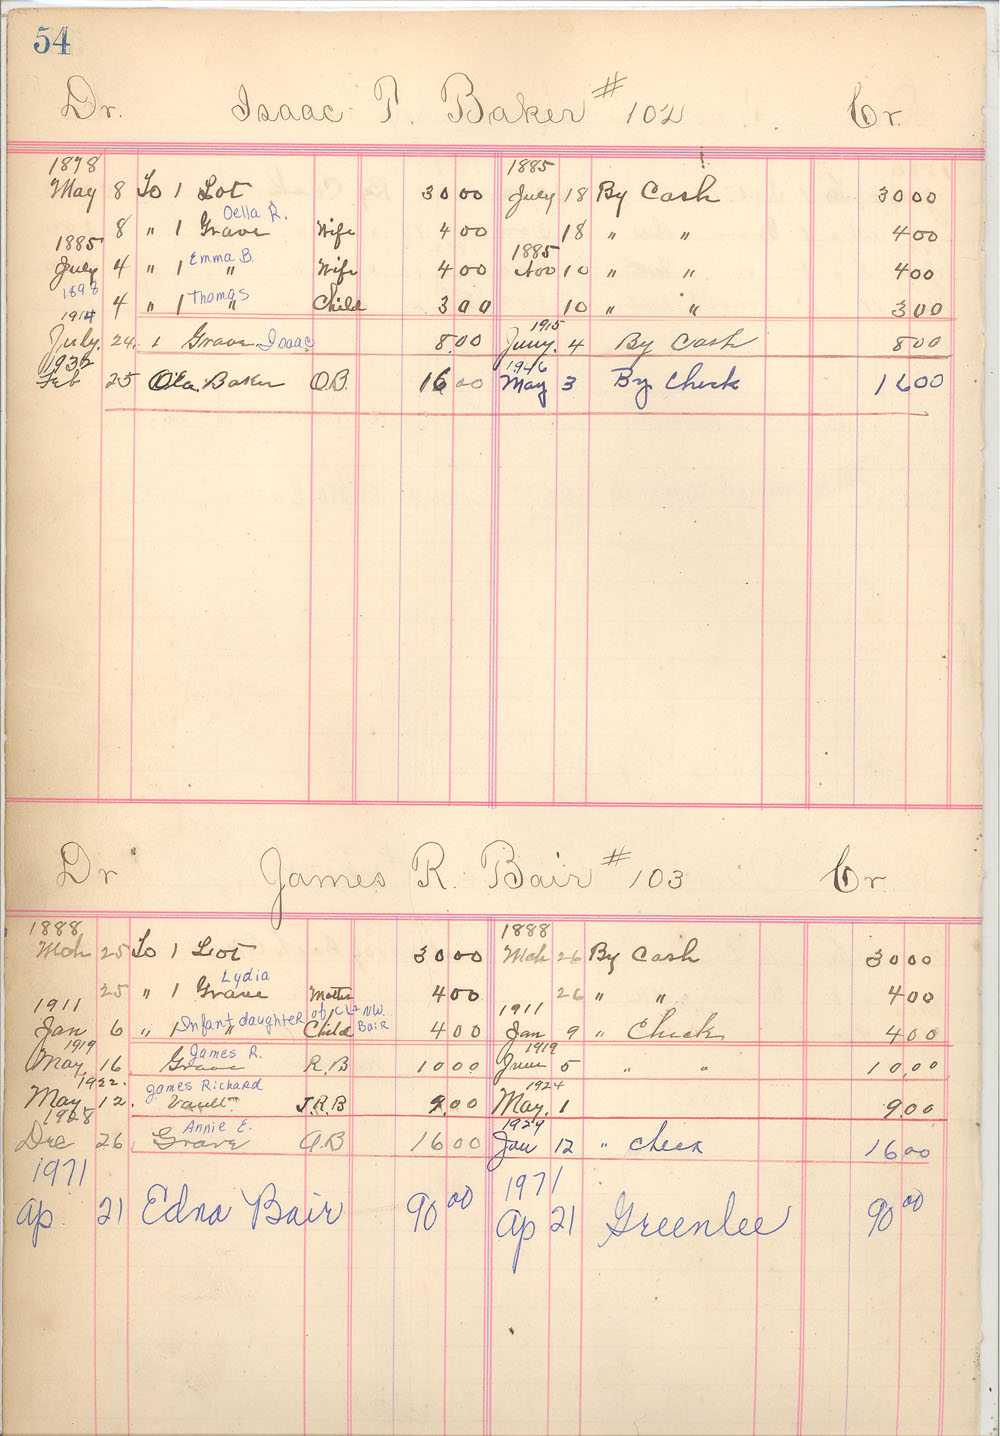 54
Dr. Isaac P. Baker # 102 Cr.
1878 1885
May 8 To 1 Lot 30 00 July 18 By Cash 30 00
Della R.
8 " 1 Grave Wife 4 00 18 " " 4 00
1885 Emma B. 1885
July 4 " 1 " Wife 4 00 Nov 10 " " 4 00
1898 Thomas
4 " 1 " Child 3 00 10 " " 3 00
1914 1915
July. 24. 1 Grave Isaac 8.00 4 By Cash 8 00
1932 1946
Feb 25 Ola Baker O.B. 16 00 May 3 By Check 16 00
Dr James R. Bair # 103 Cr.
1888 1888
Mch 25 To 1 Lot 30 00 Mch 26 By Cash 30 00
Lydia
25 " 1 Grave Mother 4 00 26 " " 4 00
1911 Infant daughter of NW. Bair 1911
Jan 6 " 1 " Child 4 00 Jan 9 " Check 4 00
1919 James R. 1919
May 16 Grave R.B 10 00 June 5 " " 10.00
1922. James Richard 1924
May 12. Vault J.R.B 9.00 May. 1 9.00
1928 Annie E. 1929
Dec 26 Grave A.B 16 00 Jan 12 " Check 16 00
1971 1971
Ap 21 Edna Bair 90 00 Ap 21 Greenlee 90 00